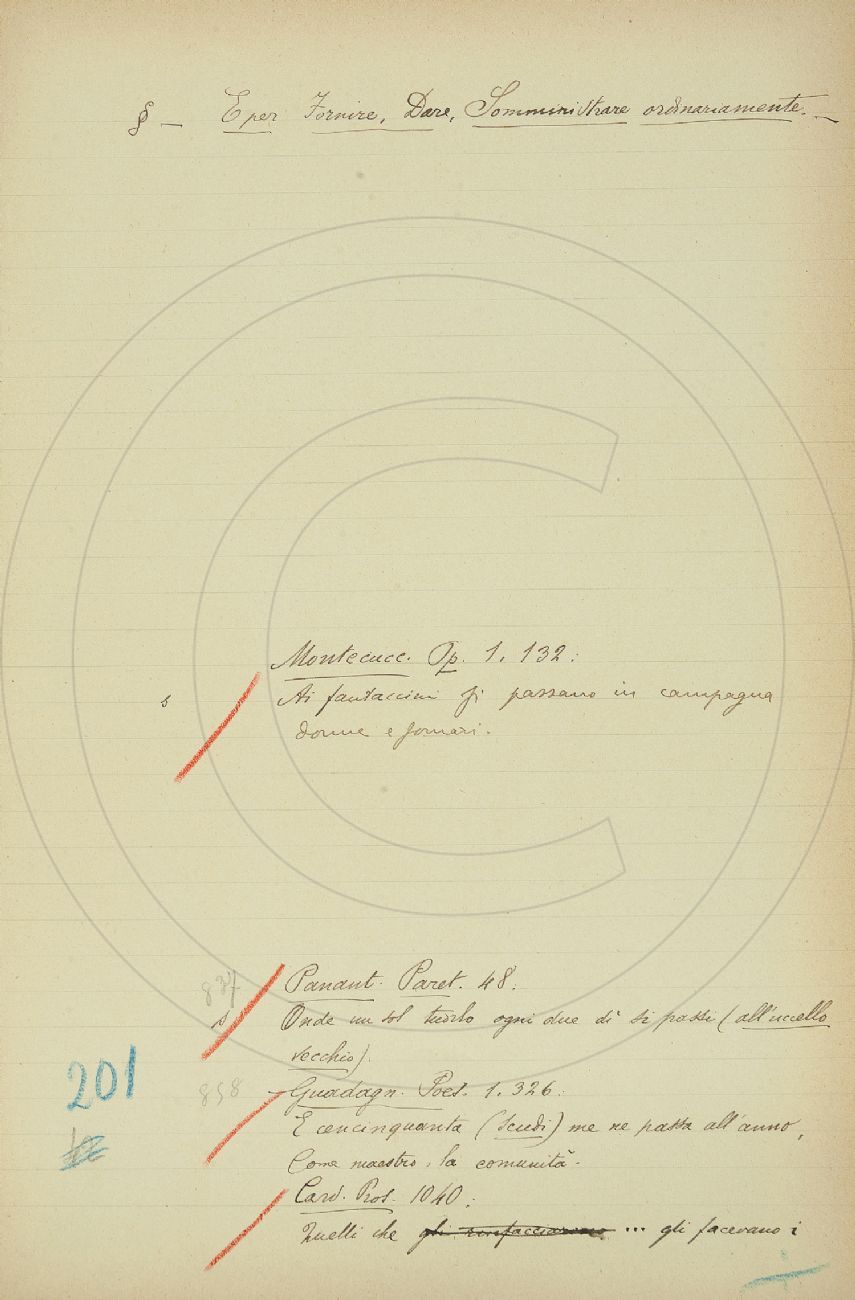 § — E per Fornire, Dare, Somministrare ordinariamente. —
Montecucc. Op. 1. 132:
s Ai fantaccini si passano in campagna
donne e somari.
837 Panant. Paret. 48.
s Onde un sol tuorlo ogni due dì si passi (all'uccello
vecchio).
201
858 Guadagn. Poes. 1. 326.
E cencinquanta (scudi) me ne passa all'anno,
Come maestro, la comunità.
Card. Pros. 1040:
Quelli che gli rinfacciarono ... gli facevano i